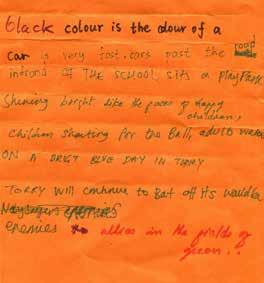 black colour is the colour of a
car is very fast. cars past the road
infrond of THE SCHOOL sits a play Park
Shining bright like the faces of happy
children,
children shouting for the Ball, adults
ON A BRIGT BLUE DAY IN TORRY
TORRY will continue to Bat off its
enemies
enemies alies in the fields of
green..